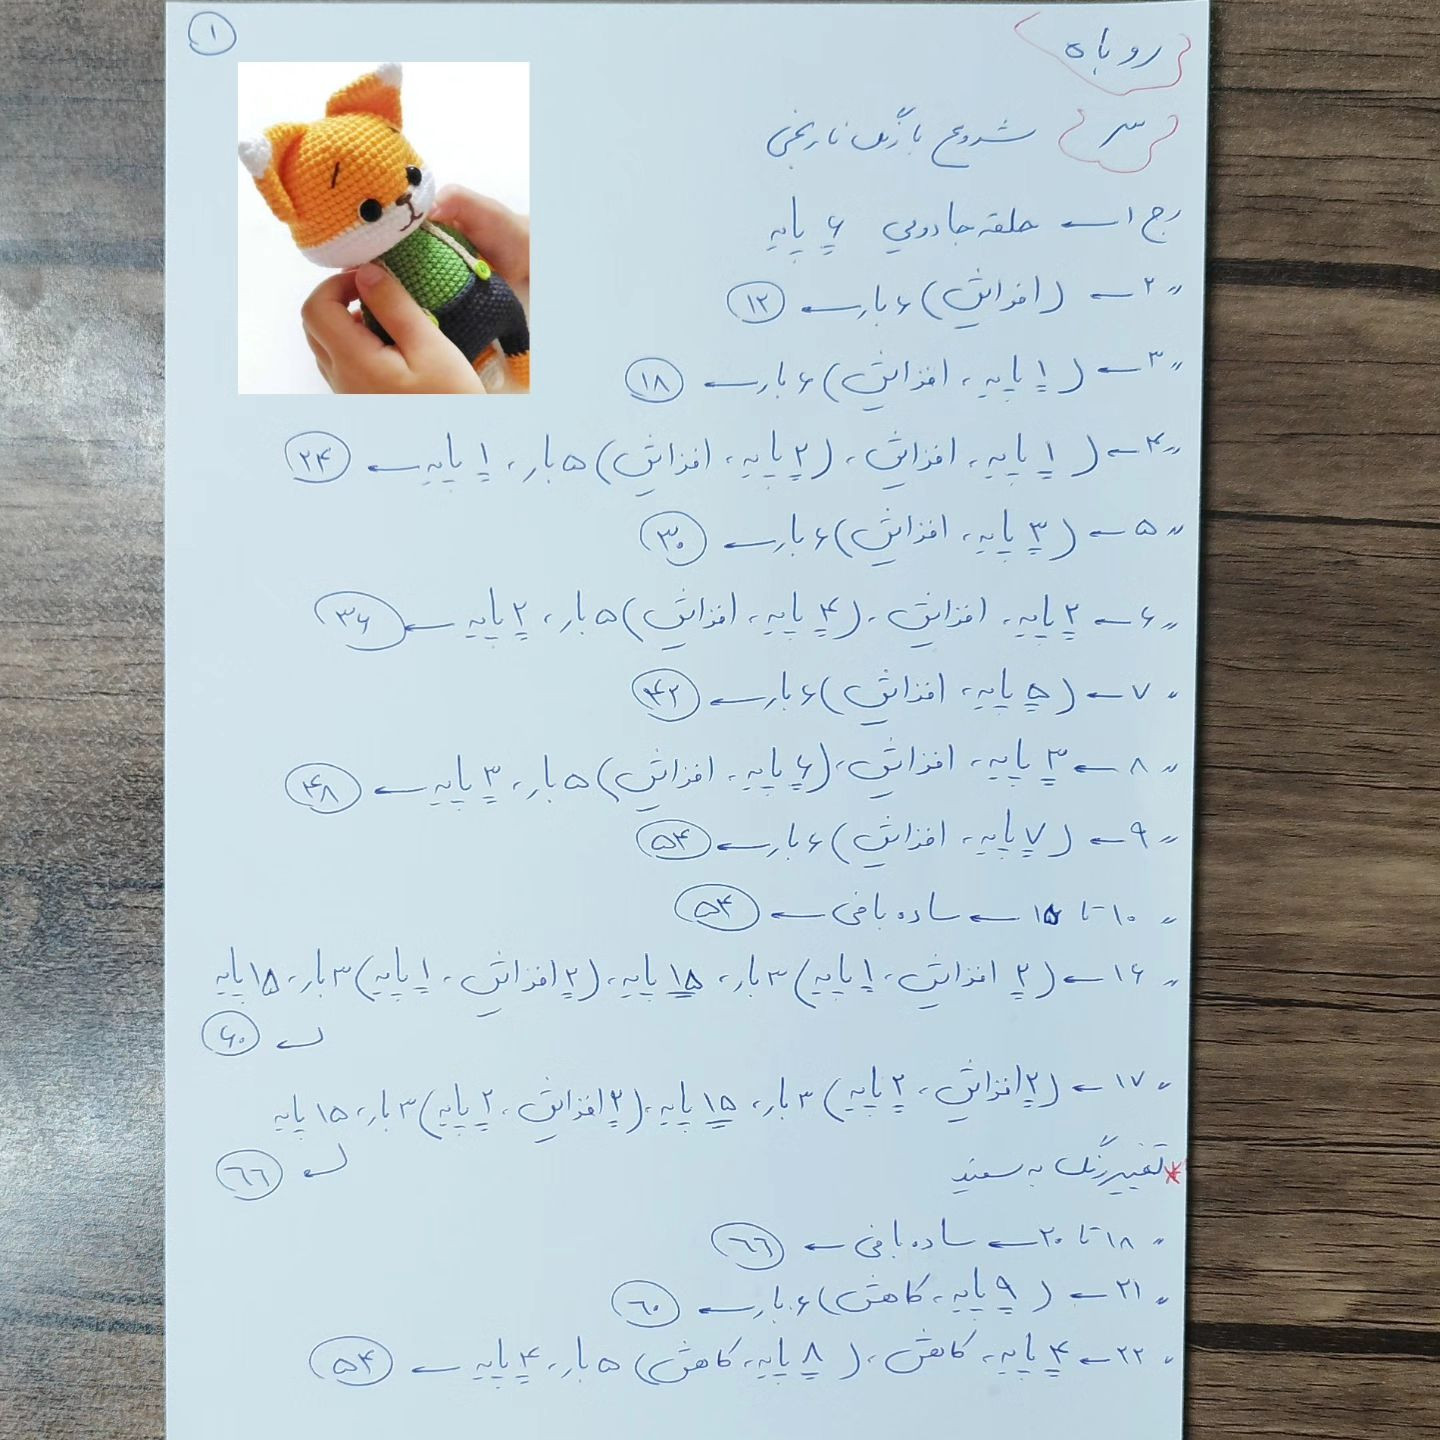 ۱
روباه
سر شروع با رنگ نارنجی
رج ۱ ← حلقه جادویی ۶ پایه
〃 ۲ ← (افزایش) ۶ بار ← ۱۲
〃 ۳ ← (۱ پایه، افزایش) ۶ بار ← ۱۸
〃 ۴ ← (۱ پایه، افزایش، (۲ پایه، افزایش) ۵ بار، ۱ پایه ← ۲۴
〃 ۵ ← (۳ پایه، افزایش) ۶ بار ← ۳۰
〃 ۶ ← ۲ پایه، افزایش، (۴ پایه، افزایش) ۵ بار، ۲ پایه ← ۳۶
〃 ۷ ← (۵ پایه، افزایش) ۶ بار ← ۴۲
〃 ۸ ← ۳ پایه، افزایش، (۶ پایه، افزایش) ۵ بار، ۳ پایه ← ۴۸
〃 ۹ ← (۷ پایه، افزایش) ۶ بار ← ۵۴
〃 ۱۰ تا ۱۵ ← ساده بافی ← ۵۴
〃 ۱۶ ← (۲ افزایش، ۱ پایه) ۳ بار، ۱۵ پایه، (۲ افزایش، ۱ پایه) ۳ بار، ۱۵ پایه
← ۶۰
〃 ۱۷ ← (۲ افزایش، ۲ پایه) ۳ بار، ۱۵ پایه، (۲ افزایش، ۲ پایه) ۳ بار، ۱۵ پایه
← ۶۶
* تغییر رنگ به سفید
〃 ۱۸ تا ۲۰ ← ساده بافی ← ۶۶
〃 ۲۱ ← (۹ پایه، کاهش) ۶ بار ← ۶۰
〃 ۲۲ ← ۴ پایه، کاهش، (۸ پایه، کاهش) ۵ بار، ۴ پایه ← ۵۴